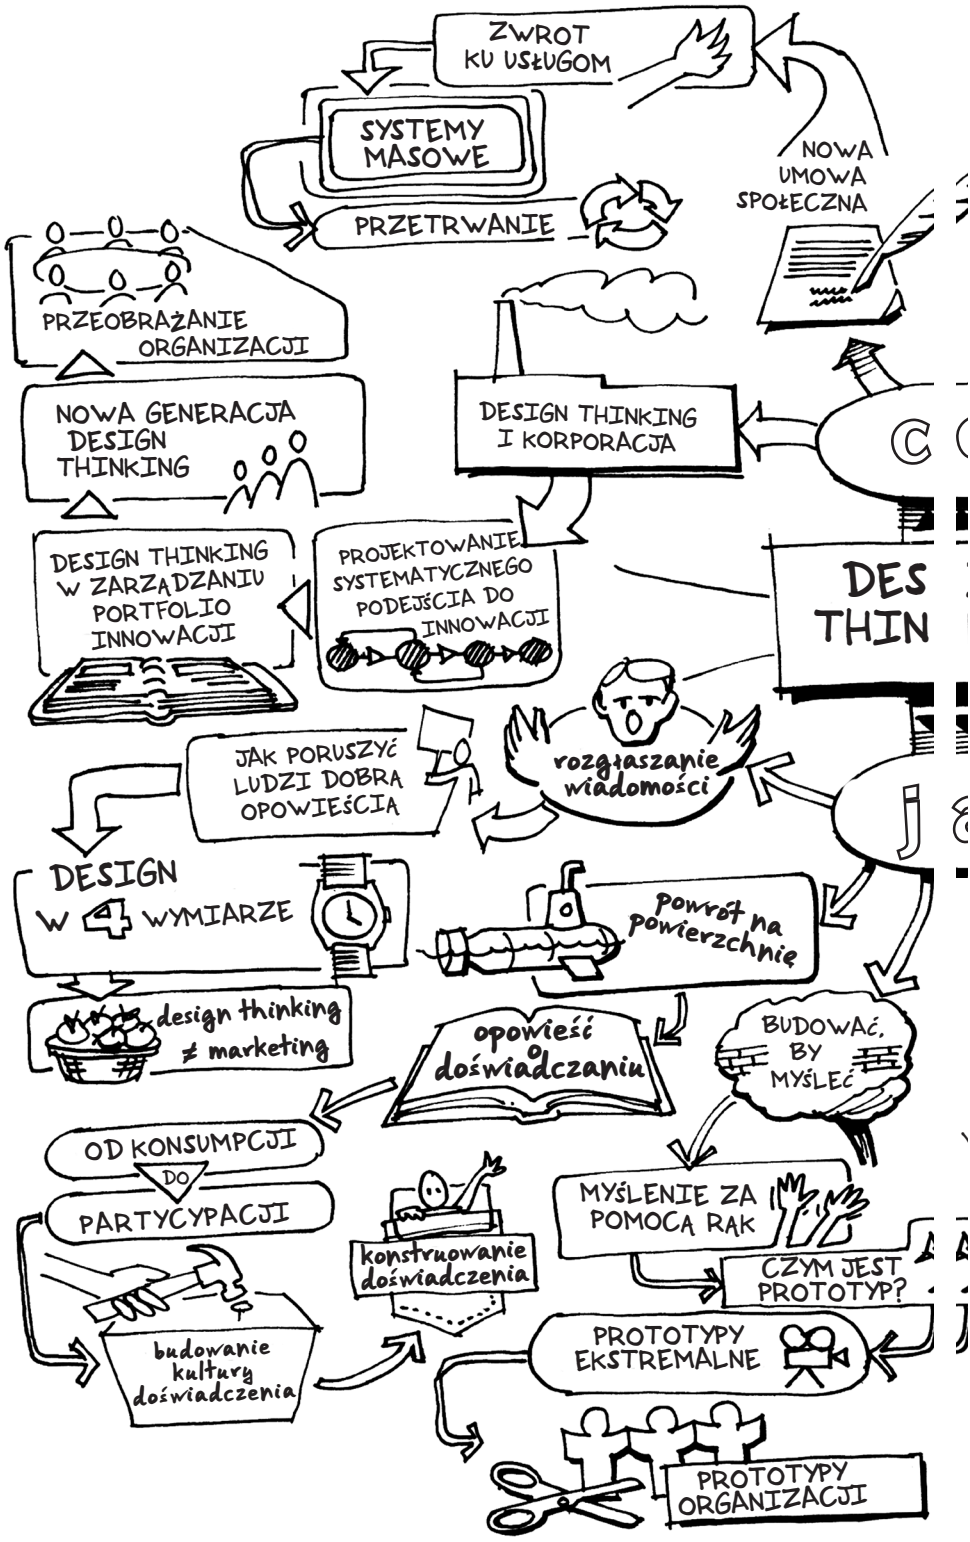 ZWROT
KU USŁUGOM
SYSTEMY
MASOWE
PRZETRWANIE
NOWA
UMOWA
SPOŁECZNA
PRZEOBRAŻANIE
ORGANIZACJI
NOWA GENERACJA
DESIGN
THINKING
DESIGN THINKING
I KORPORACJA
C
DESIGN THINKING
W ZARZĄDZANIU
PORTFOLIO
INNOWACJI
PROJEKTOWANIE
SYSTEMATYCZNEGO
PODEJŚCIA DO
INNOWACJI
DES
THIN
rozgłaszanie
wiadomości
JAK PORUSZYĆ
LUDZI DOBRĄ
OPOWIEŚCIĄ
j a
DESIGN
W 4 WYMIARZE
powrót na
powierzchnię
design thinking
≠ marketing
opowieść
o
doświadczaniu
BUDOWAĆ,
BY
MYŚLEĆ
OD KONSUMPCJI
DO
PARTYCYPACJI
MYŚLENIE ZA
POMOCĄ RĄK
konstruowanie
doświadczenia
CZYM JEST
PROTOTYP?
budowanie
kultury
doświadczenia
PROTOTYPY
EKSTREMALNE
PROTOTYPY
ORGANIZACJI